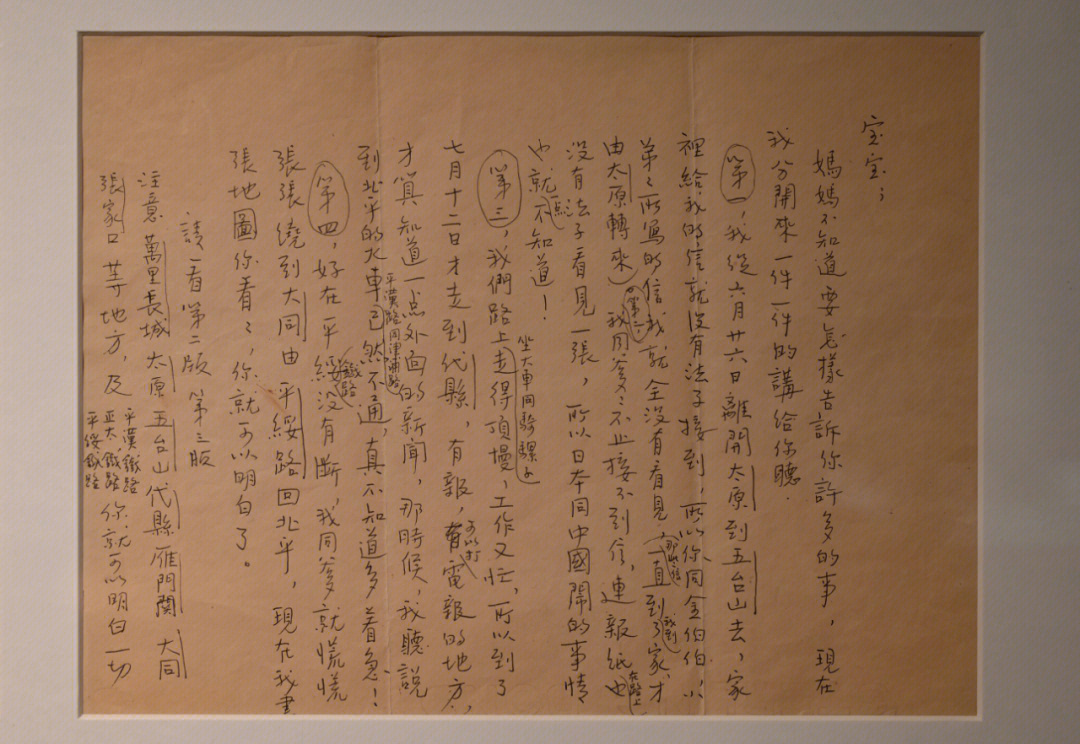 宝宝；
媽媽不知道要怎樣告訴你許多的事，現在
我分開來一件一件的講給你聽．
第一，我從六月廿六日離開太原到五台山去，家
裡給我的信就沒有法子接到，所以你同金伯伯，小
弟弟所寫的信我就全沒有看見，（那些信一直到了我到家，才
由太原轉來）
第二，我同爹爹不止接不到信，連報紙在路上也
沒有法子看見一張，所以日本同中國鬧的事情
也就一点不知道！
第三，我們路上坐大車同騎騾子，走得頂慢，工作又忙，所以到了
七月十二日才走到代縣，有報，可以打電報的地方，
才算知道一点外面的新聞，那時候，我聽說
到北平的火車，平漢路同津浦路已然不通，真不知道多着急！
第四，好在平綏鐵路没有断，我同爹就慌慌
張張繞到大同由平綏路回北平，現在我畫
張地圖你看看，你就可以明白了。
請看第二版 第三版
注意萬里長城 太原 五台山 代縣 雁門關 大同
張家口等地方，及
平漢鐵路
正太鐵路
平綏鐵路
你就可以明白一切